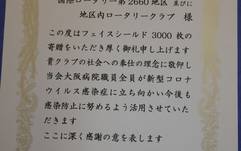 国際ロータリー第2660地区 並びに
地区内ロータリークラブ 様
この度はフェイスシールド 3000 枚の
寄贈をいただき厚く御礼申し上げます
貴クラブの社会への奉仕の理念に敬仰し
当会大阪病院職員全員が新型コロナ
ウイルス感染症に立ち向かい今後も
感染防止に努めるよう活用させていた
だきます
ここに深く感謝の意を表します